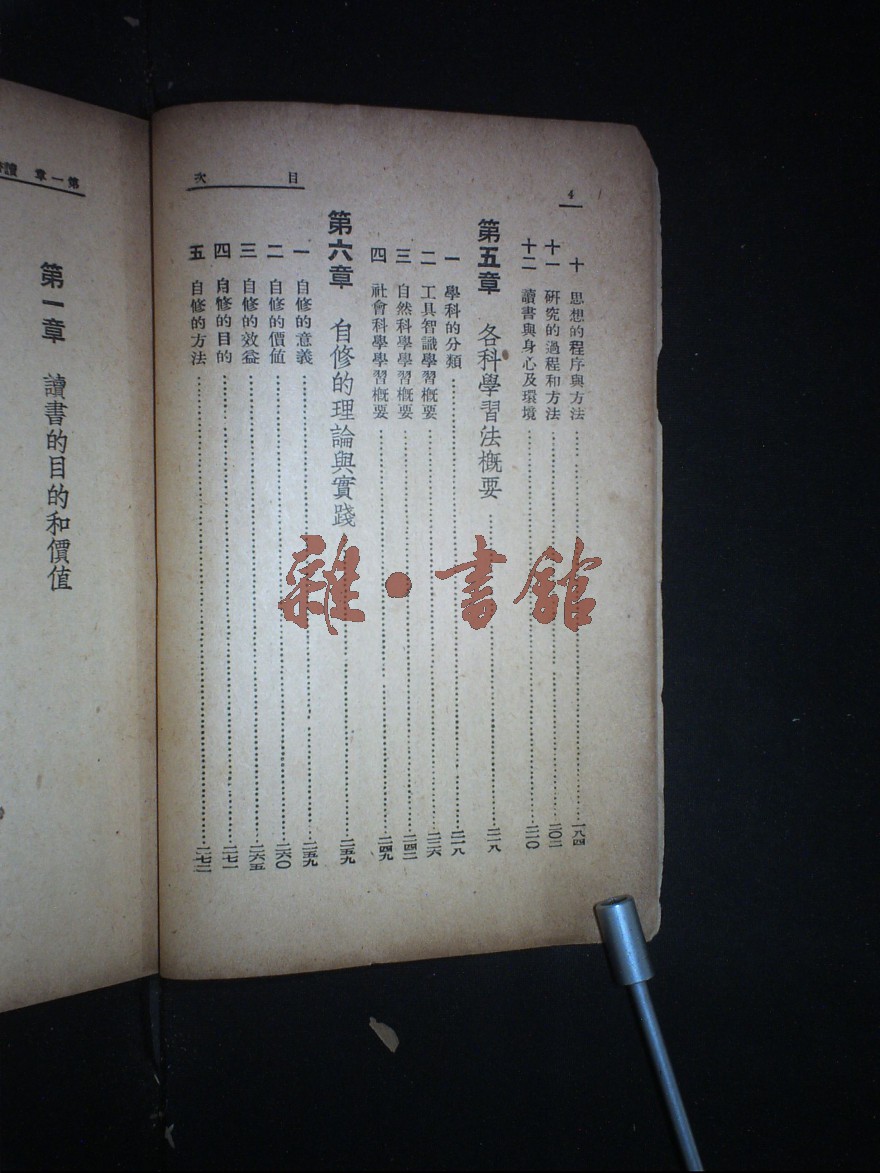 4
目 次
十 思想的程序與方法……一八四
十一 研究的過程和方法……二〇二
十二 讀書與身心及環境……二一〇
第五章 各科學習法概要……二一八
一 學科的分類……二一八
二 工具智識學習概要……二二六
三 自然科學學習概要……二四二
四 社會科學學習概要……二四九
第六章 自修的理論與實踐……二五九
一 自修的意義……二五九
二 自修的價值……二六〇
三 自修的效益……二六五
四 自修的目的……二七一
五 自修的方法……二七二
第一章 讀
第一章 讀書的目的和價值
雜·書館